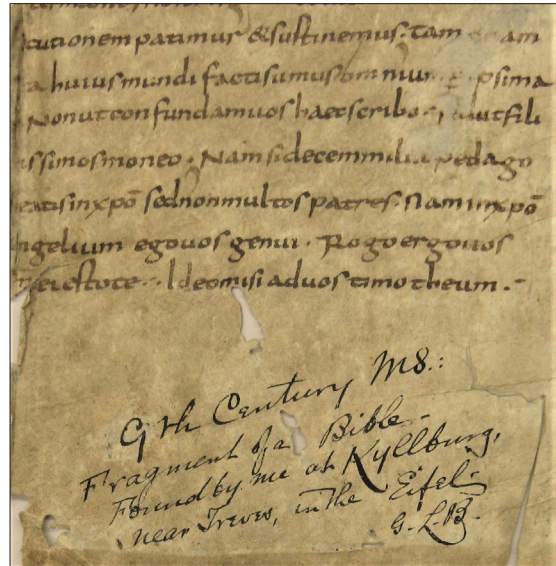 cutionem patimur & sustinemus. Tam am
a huius mundi facti sumus omnium psima
Non ut confundam uos haec scribo. ut fili
issimos moneo. Nam si decem milia pedago
eatis in xpo sed non multos patres. Nam in xpo
ngelium ego uos genui. Rogo ergo uos
estote. Ideo misi ad uos timotheum.
9th Century MS.:
Fragment of a Bible.
Found by me at Kyllburg,
near Treves, in the Eifel.
G. L. B.